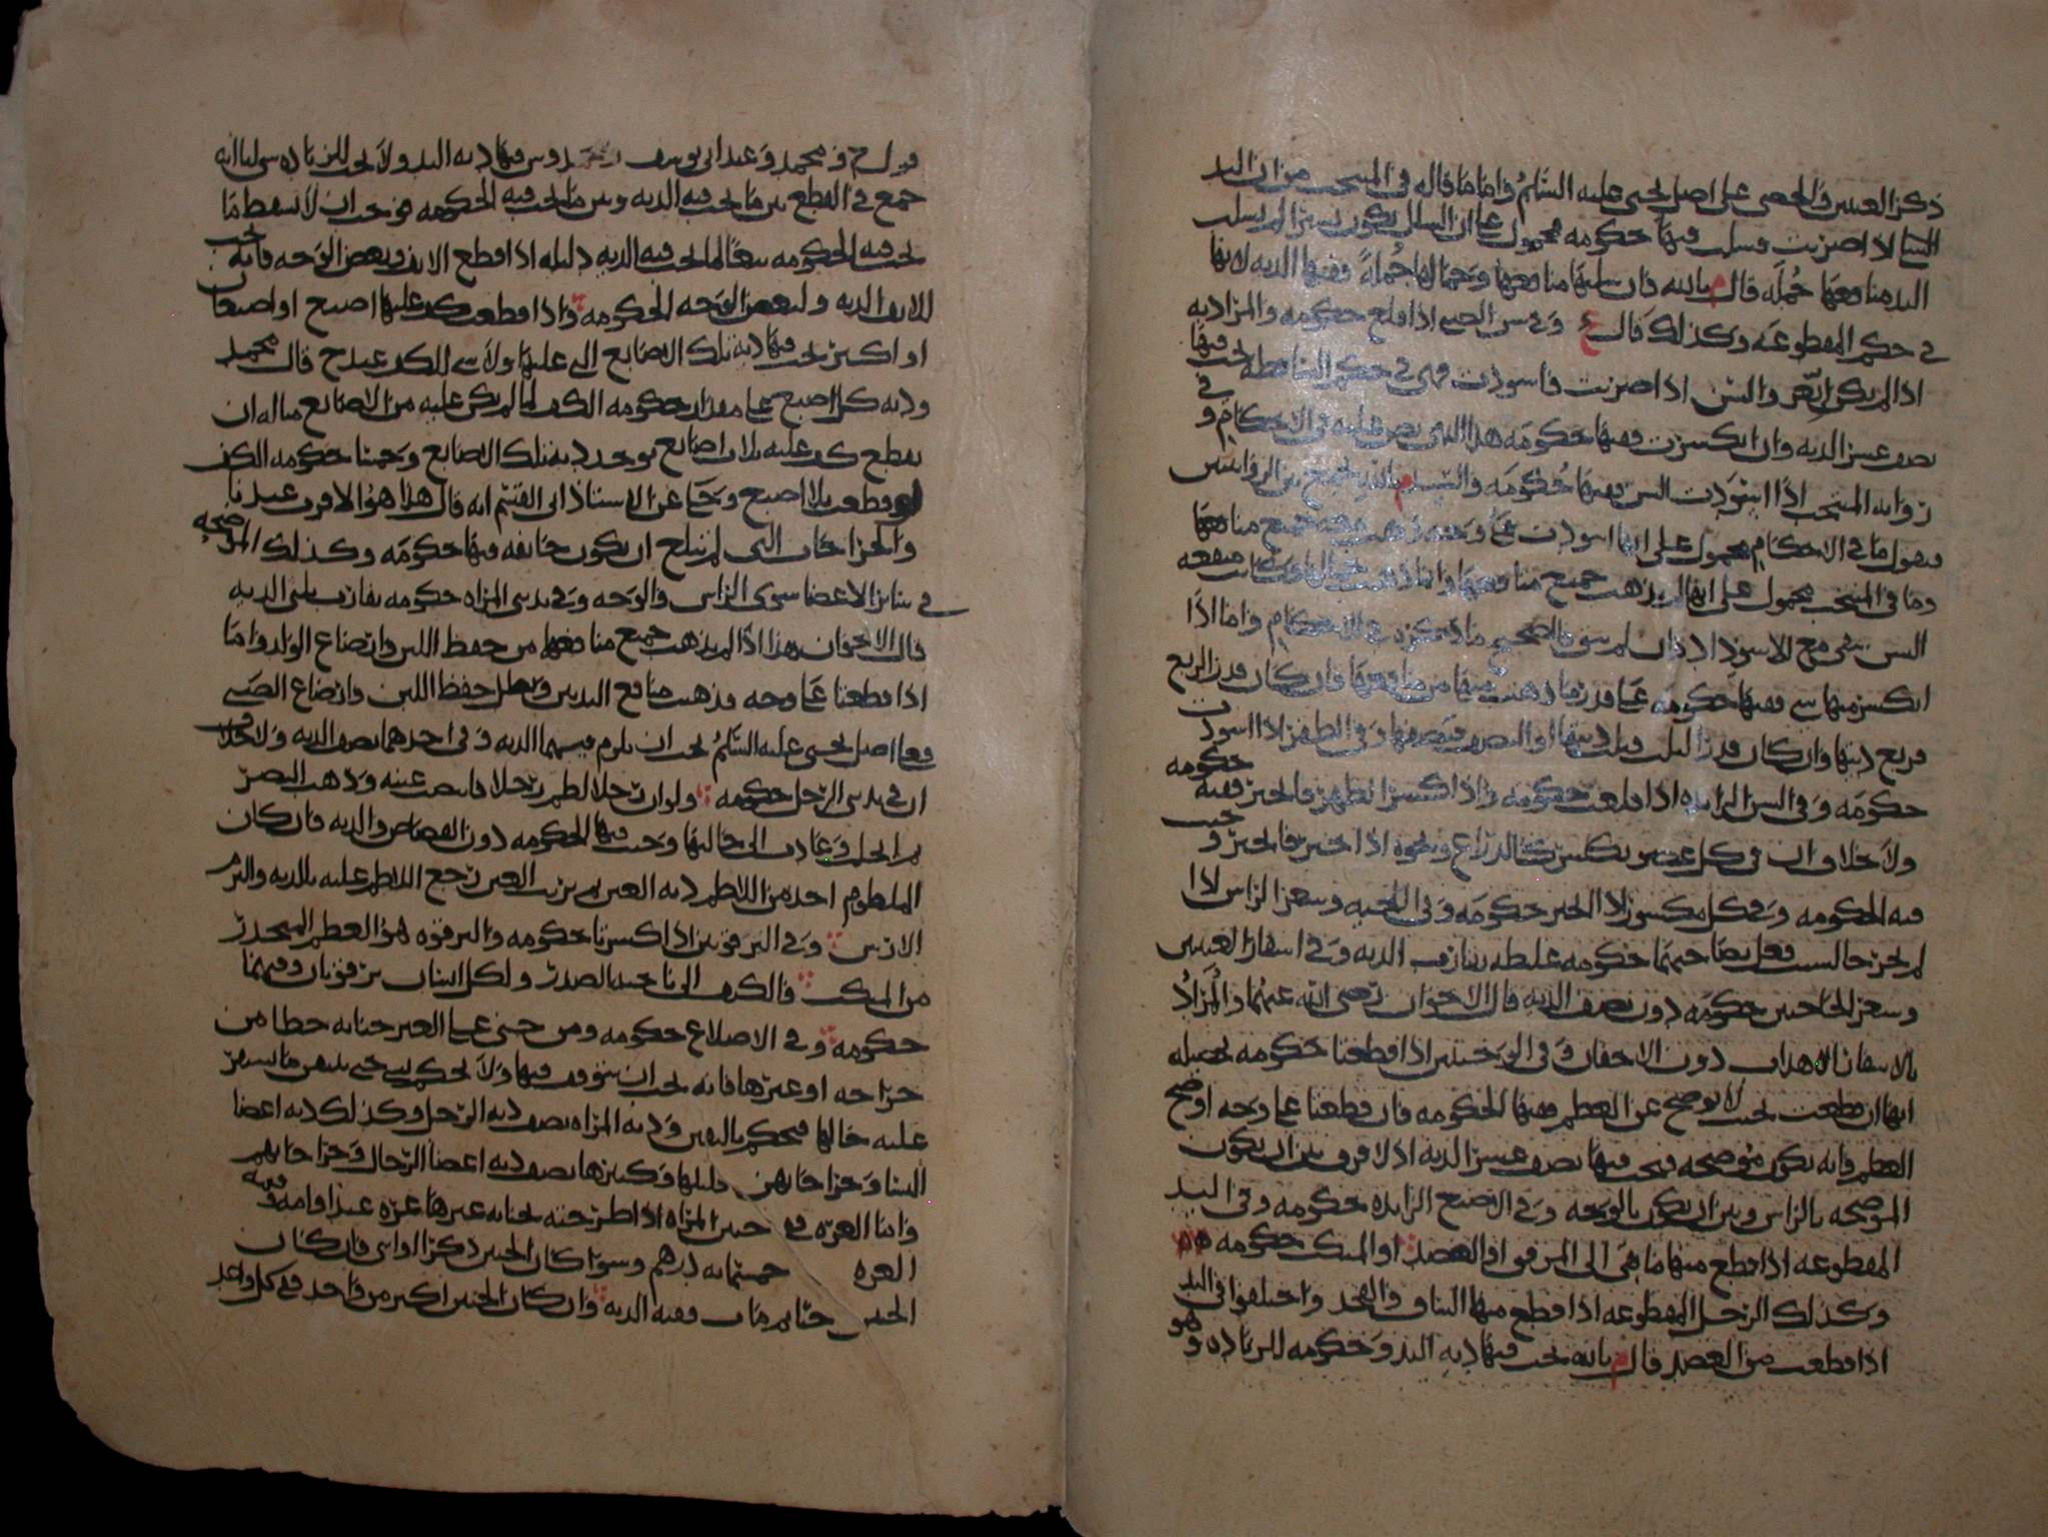 ذكر العينين والخصى على اصل يحيى عليه السلام واما ما قاله في المنتخب من ان اليد
اذا ضربت فسلت ففيها حكومه محمول على ان الشلل يكون يسيرا لم يسلب
اليد منافعها جمله قال م بالله فان سلبها منافعها وجمالها جملة ففيها الديه لانها
في حكم المقطوعه وكذلك قال ع وفي سن الصبي اذا قلع حكومه والمراد به
اذا لم يكن اثغر والسن اذا ضربت فاسودت فهي في حكم الساقطه يجب فيها
نصف عشر الديه وان انكسرت ففيها حكومه هذا الذي نص عليه في الاحكام و في
روايه المنتخب اذا اسودت السن ففيها حكومه والسيد م بالله يجمع بين الروايتين
فيقول ما في الاحكام محمول على انها اسودت على وجه ذهبت معه جميع منافعها
وما في المنتخب محمول على انها لم يذهب جميع منافعها وانما ذهب جمالها منفعه
السن تبقى مع الاسوداد لم والصحيح ما ذكره في الاحكام واما اذا
انكسر منها شي ففيها حكومه على قدر ما ذهب منها من منافعها فان كان قدر الربع
فربع ديتها وان كان قدر الثلث فثلث ديتها او النصف فنصفها وفي الظفر اذا اسودت
حكومه وفي السن الزايده اذا قلعت حكومه واذا انكسر الظهر فانجبر ففيه حكومه
ولا خلاف ان في كل عضو يكسر كالذراع ونحوه اذا انجبر وجبت
فيه الحكومه وفي كل مكسور اذا انجبر حكومه وفي اللحيه وشعر الراس اذا
لم يخرجا لسبب فعل بهما حكومه غليظه تقارب الديه وفي اشفار العينين
وشعر الحاجبين حكومه دون نصف الديه قال الاخوان رضي الله عنهما والمراد
بالاشفار الاهداب دون الاجفان وفي الوجنتين اذا قطعتا حكومه
انها ان قطعت بحيث لا توضح عن العظم ففيها الحكومه فان قطعتا على وجه اوضح
العظم فانه يكون موضحه فيجب فيها نصف عشر الديه اذ لا فرق بين ان يكون
الموضحه بالراس وبين ان يكون بالوجه وفي الاصبع الزايده حكومه وفي اليد
المقطوعه اذا قطع منها ما بقي الى المرفق او العضد او المنكب حكومه
وكذلك الرجل المقطوعه اذا قطع منها الساق والفخذ واختلفوا في اليد
اذا قطعت من العضد قال م بالله يجب فيها ديه اليد وحكومه للزياده وهو
قول ح ومحمد وعند ابي يوسف فيها ديه اليد ولا يجب للزياده شي لنا انه
جمع في القطع بين ما يجب فيه الديه وبين ما يجب فيه الحكومه فوجب ان لا يسقط ما
يجب فيه الحكومه تبعا لما يجب فيه الديه دليله اذا قطع الانف وبعض الوجه فانه يجب
للانف الديه ولبعض الوجه الحكومه واذا قطعت كف عليها اصبع او اصبعان
او اكثر يجب فيها ديه تلك الاصابع التي عليها ولا شي للكف عند ح قال محمد
وديه كل اصبع على مقدار حكومه الكف لما لم يكن عليه من الاصابع مثاله ان
يقطع كف عليه ثلاث اصابع يوخذ ديه تلك الاصابع وخمسا حكومه الكف
لو قطعت بلا اصبع وحكى عن الاستاذ ابي القسم انه قال هذا هو الاقرب عندنا
والجراحات التي لم تبلغ ان يكون جائفه فيها حكومه وكذلك الموضحه
في سائر الاعضا سوى الراس والوجه وفي ثديي المراه حكومه تقارب ثلثي الديه
قال الاخوان هذا اذا لم يذهب جميع منافعهما من حفظ اللبن وارضاع الولد واما
اذا قطعتا على وجه قد ذهبت منافع الثديين وبطل حفظ اللبن وارضاع الصبي
فعلى اصل يحيى عليه السلام يجب ان يلزم فيهما الديه وفي احدهما نصف الديه ولا خلاف
ان في ثديي الرجل حكومه ولو ان رجلا لطم رجلا فابيضت عينه وذهب البصر
ثم انجلت وعادت الى حالتها وجبت فيها الحكومه دون القصاص والديه فان كان
الملطوم اخذ من اللاطم ديه العين ثم بريت العين رجع اللاطم عليه بالديه والتزم
الارش وفي الترقوتين اذا كسرتا حكومه والترقوه هو العظم المنحدر
من المنكب والكتف الى ناحيه الصدر ولكل انسان ترقوتان وفيهما
حكومه وفي الاضلاع حكومه ومن جنى على العين جنايه خطا من
جراحه او غيرها فانه يجب ان يتوقف فيها ولا يحكم بشي حتى يتبين ما يستقر
عليه حالها فيحكم باليقين وديه المراه نصف ديه الرجل وكذلك ديه اعضا
النسا وجراحاتهن قليلها وكثيرها نصف ديه اعضا الرجال وجراحاتهم
واما الغره ففي جنين المراه اذا اطرحته بجنايه غيرها غره عبد او امه وقيمه
الغره خمسمايه درهم وسوا كان الجنين ذكرا او انثى فان كان
الجنين حيا ثم مات ففيه الديه وان كان الجنين اكثر من واحد ففي كل واحد